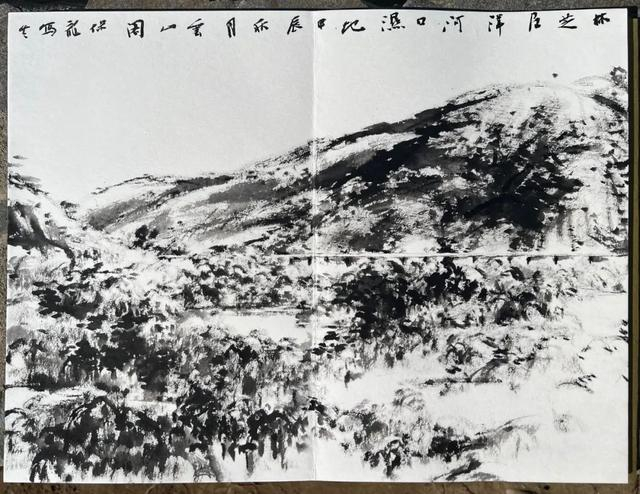 林芝尼洋河口濕地甲辰秋月重山保寫生